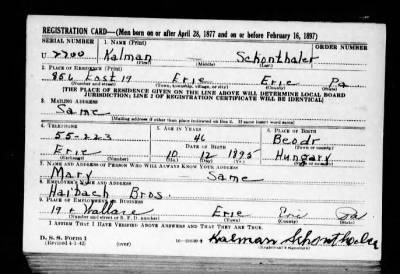 REGISTRATION CARD—(Men born on or after April 28, 1877 and on or before February 16, 1897)
SERIAL NUMBER 1. NAME (Print) ORDER NUMBER
U 2200 Kalman Schonthaler
(First) (Middle) (Last)
2. PLACE OF RESIDENCE (Print)
856 East 19 Erie Erie Pa
(Number and street) (Town, township, village, or city) (County) (State)
[THE PLACE OF RESIDENCE GIVEN ON THE LINE ABOVE WILL DETERMINE LOCAL BOARD
JURISDICTION; LINE 2 OF REGISTRATION CERTIFICATE WILL BE IDENTICAL]
3. MAILING ADDRESS
Same
[Mailing address if other than place indicated on line 2. If same insert word same]
4. TELEPHONE 5. AGE IN YEARS 6. PLACE OF BIRTH
55-223 46 Beodr
DATE OF BIRTH (Town or county)
Erie 10 12 1895 Hungary
(Exchange) (Number) (Mo.) (Day) (Yr.) (State or country)
7. NAME AND ADDRESS OF PERSON WHO WILL ALWAYS KNOW YOUR ADDRESS
Mary Same
8. EMPLOYER'S NAME AND ADDRESS
Haibach Bros.
9. PLACE OF EMPLOYMENT OR BUSINESS
19 & Wallace Erie Erie Pa
(Number and street or R. F. D. number) (Town) (County) (State)
I AFFIRM THAT I HAVE VERIFIED ABOVE ANSWERS AND THAT THEY ARE TRUE.
D. S. S. FORM 1
(Revised 4-1-42) (over) Kalman Schonthaler
(Registrant's signature)